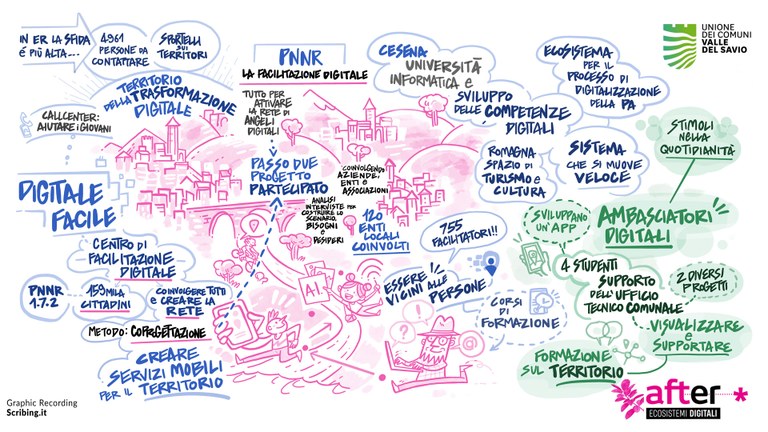 IN ER LA SFIDA
É PIÙ ALTA...
4961
PERSONE DA
CONTATTARE
SPORTELLI
SUI
TERRITORI
TERRITORIO
DELLA TRASFORMAZIONE
DIGITALE
CALLCENTER:
AIUTARE I GIOVANI
DIGITALE
FACILE
CENTRO DI
FACILITAZIONE
DIGITALE
PNNR
1.7.2
159MILA
CITTADINI
COINVOLGERE TUTTI
E CREARE LA
RETE
METODO: COPROGETTAZIONE
CREARE
SERVIZI MOBILI
PER IL TERRITORIO
PNNR
LA FACILITAZIONE DIGITALE
TUTTO PER
ATTIVARE
LA RETE DI
ANGELI
DIGITALI
PASSO DUE
PROGETTO
PARTECIPATO
COINVOLGENDO
AZIENDE,
ENTI E
ASSOCIAZIONI
ANALISI
INTERVISTE PER
COSTRUIRE LO
SCENARIO,
BISOGNI
E
DESIDERI
120
ENTI
LOCALI
COINVOLTI
A.I.
ESSERE
VICINI ALLE
PERSONE
755
FACILITATORI!!
CORSI
DI
FORMAZIONE
CESENA
UNIVERSITÀ
INFORMATICA E
SVILUPPO
DELLE COMPETENZE
DIGITALI
ROMAGNA
SPAZIO DI
TURISMO E
CULTURA
ECOSISTEMA
PER IL
PROCESSO DI
DIGITALIZZAZIONE
DELLA PA
SISTEMA
CHE SI MUOVE
VELOCE
UNIONE
DEI COMUNI
VALLE
DEL SAVIO
STIMOLI
NELLA
QUOTIDIANITÀ
AMBASCIATORI
DIGITALI
SVILUPPANO
UN'APP
4 STUDENTI
SUPPORTO
DELL'UFFICIO
TECNICO COMUNALE
2 DIVERSI
PROGETTI
VISUALIZZARE
E
SUPPORTARE
FORMAZIONE
SUL TERRITORIO
after
ECOSISTEMI DIGITALI
Graphic Recording
Scribing.it